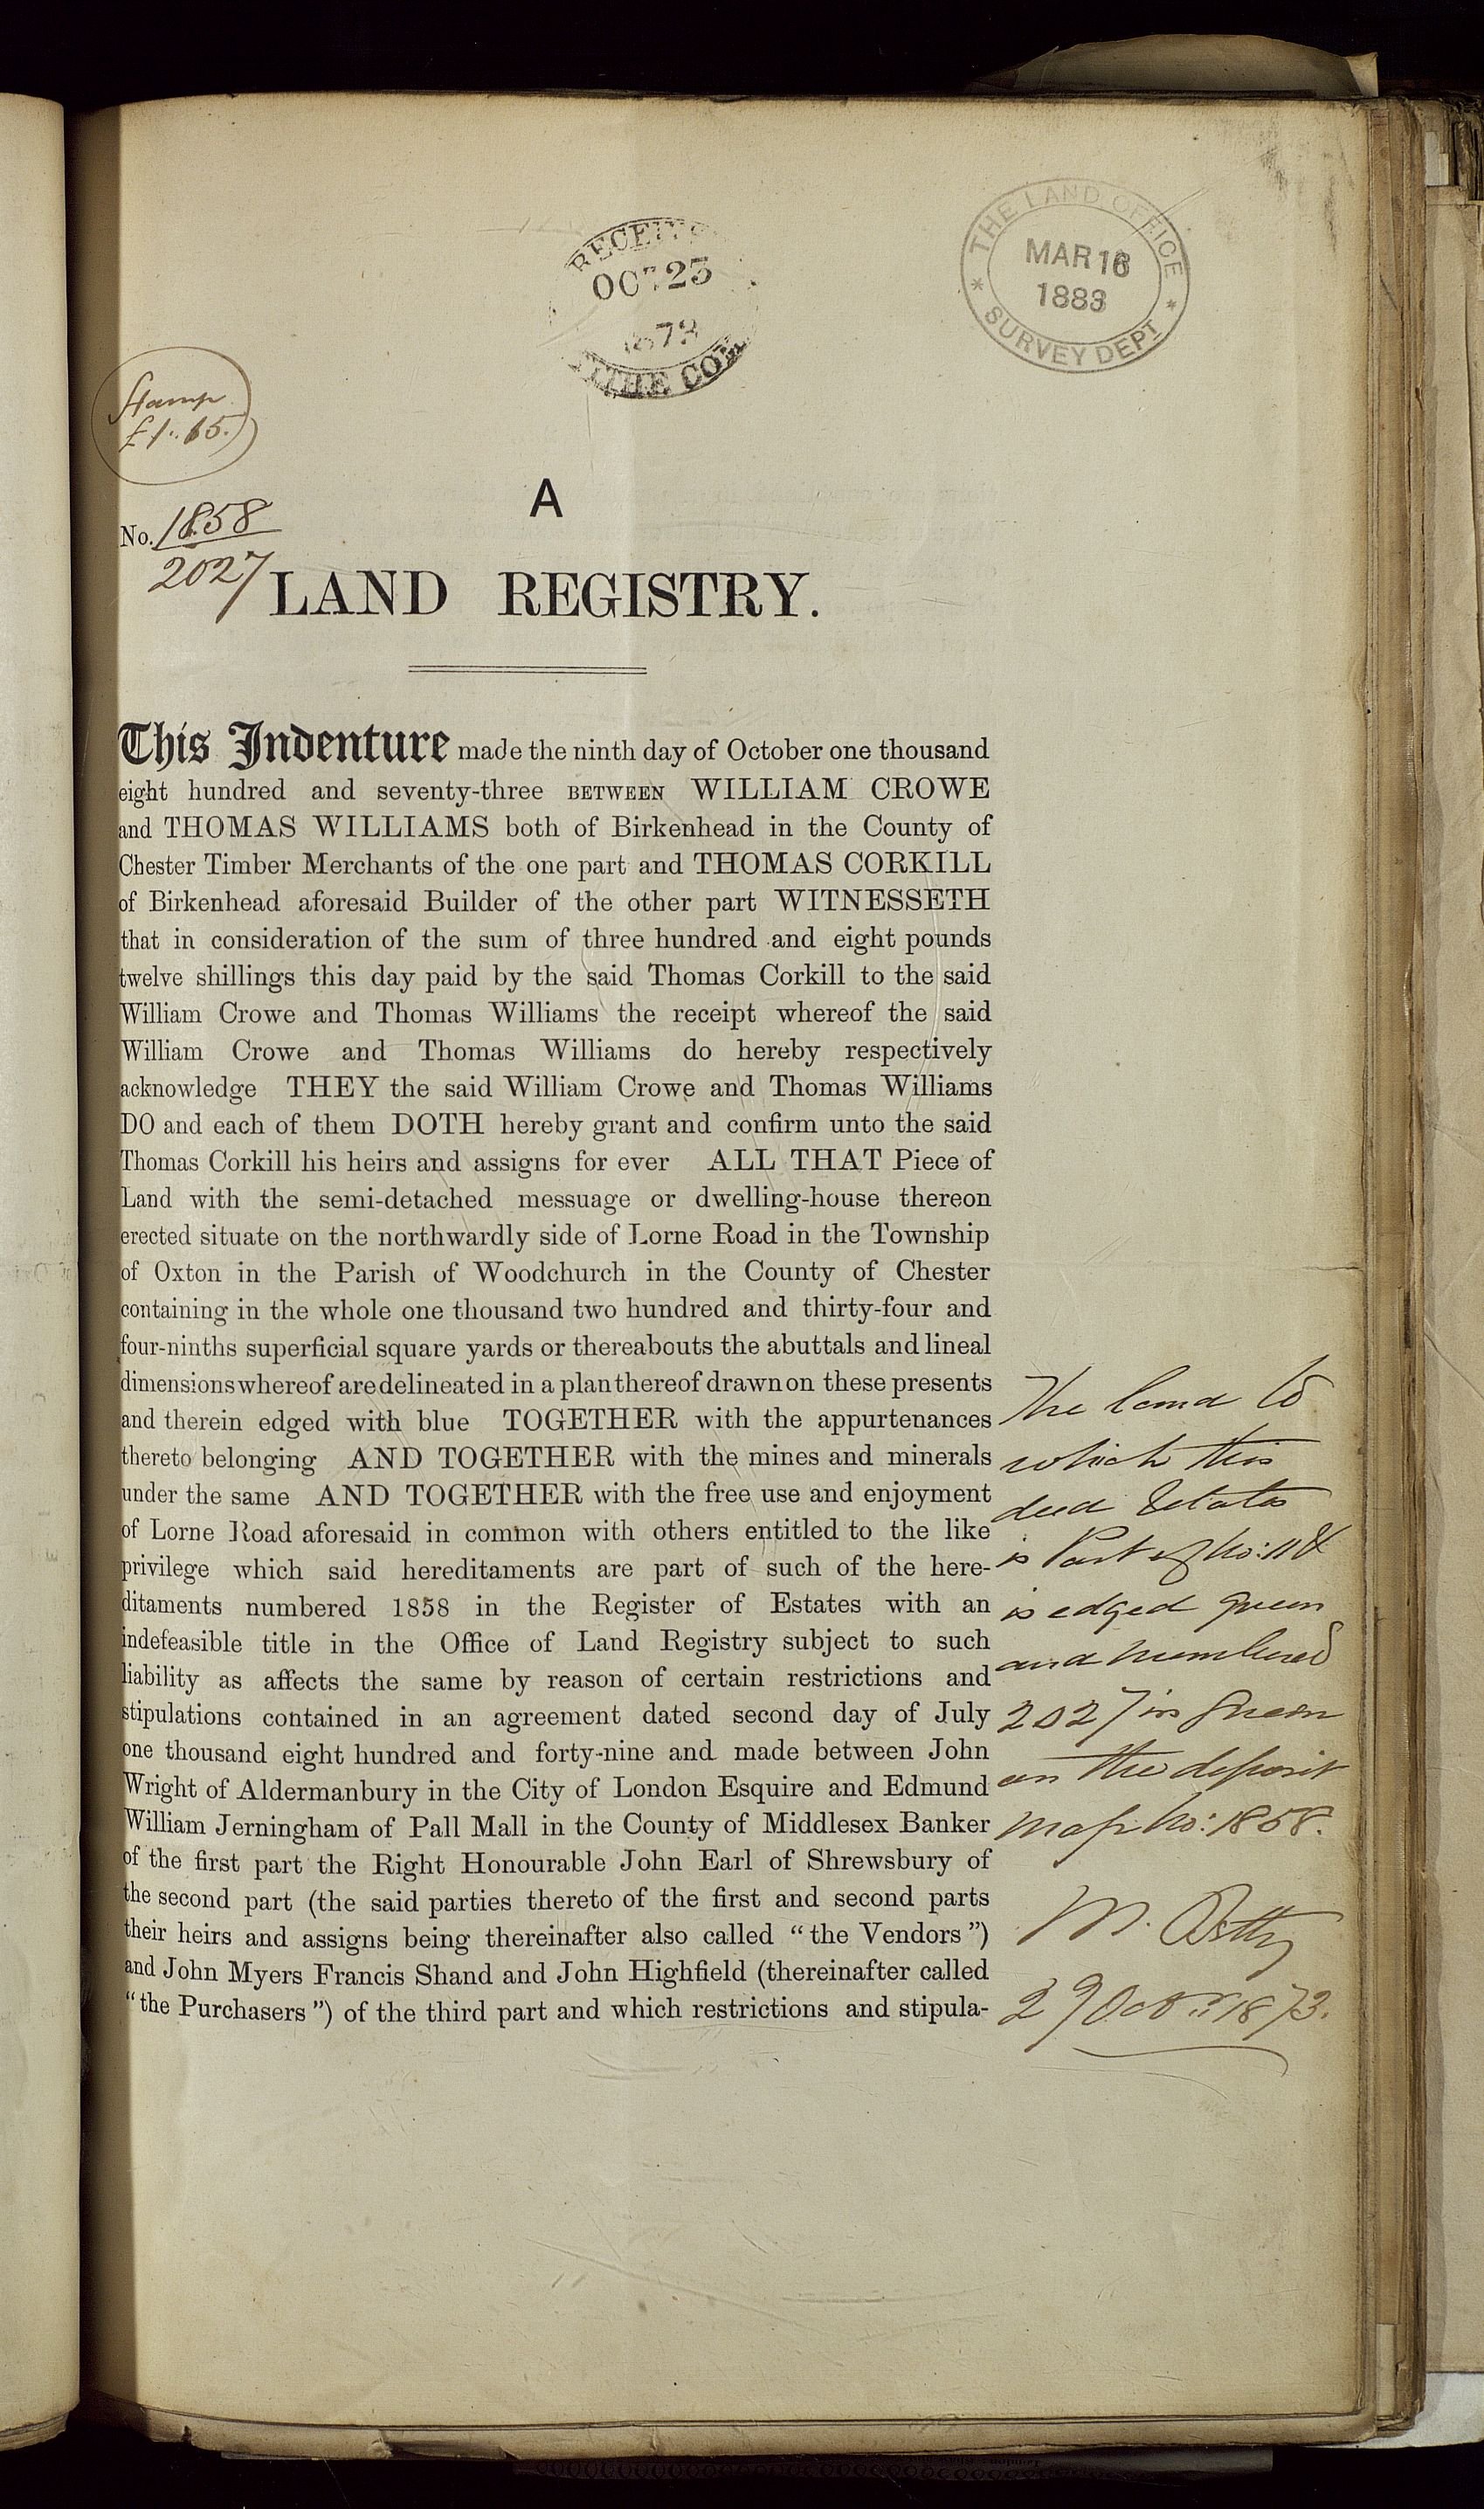 THE LAND OFFICE
MAR 16
1883
SURVEY DEPT
OCT 23
1873
THE
Stamp
£1.. 15.
A
No. 1858
2027
LAND REGISTRY.
This Indenture made the ninth day of October one thousand
eight hundred and seventy-three BETWEEN WILLIAM CROWE
and THOMAS WILLIAMS both of Birkenhead in the County of
Chester Timber Merchants of the one part and THOMAS CORKILL
of Birkenhead aforesaid Builder of the other part WITNESSETH
that in consideration of the sum of three hundred and eight pounds
twelve shillings this day paid by the said Thomas Corkill to the said
William Crowe and Thomas Williams the receipt whereof the said
William Crowe and Thomas Williams do hereby respectively
acknowledge THEY the said William Crowe and Thomas Williams
DO and each of them DOTH hereby grant and confirm unto the said
Thomas Corkill his heirs and assigns for ever ALL THAT Piece of
Land with the semi-detached messuage or dwelling-house thereon
erected situate on the northwardly side of Lorne Road in the Township
of Oxton in the Parish of Woodchurch in the County of Chester
containing in the whole one thousand two hundred and thirty-four and
four-ninths superficial square yards or thereabouts the abuttals and lineal
dimensions whereof are delineated in a plan thereof drawn on these presents
and therein edged with blue TOGETHER with the appurtenances
thereto belonging AND TOGETHER with the mines and minerals
under the same AND TOGETHER with the free use and enjoyment
of Lorne Road aforesaid in common with others entitled to the like
privilege which said hereditaments are part of such of the here-
ditaments numbered 1858 in the Register of Estates with an
indefeasible title in the Office of Land Registry subject to such
liability as affects the same by reason of certain restrictions and
stipulations contained in an agreement dated second day of July
one thousand eight hundred and forty-nine and made between John
Wright of Aldermanbury in the City of London Esquire and Edmund
William Jerningham of Pall Mall in the County of Middlesex Banker
of the first part the Right Honourable John Earl of Shrewsbury of
the second part (the said parties thereto of the first and second parts
their heirs and assigns being thereinafter also called "the Vendors")
and John Myers Francis Shand and John Highfield (thereinafter called
"the Purchasers") of the third part and which restrictions and stipula-
The land to
which this
deed relates
is Part of No: 11 &
is edged green
and numbered
2027 in Green
on the deposit
map No: 1858.
M.
29 Octr. 1873.